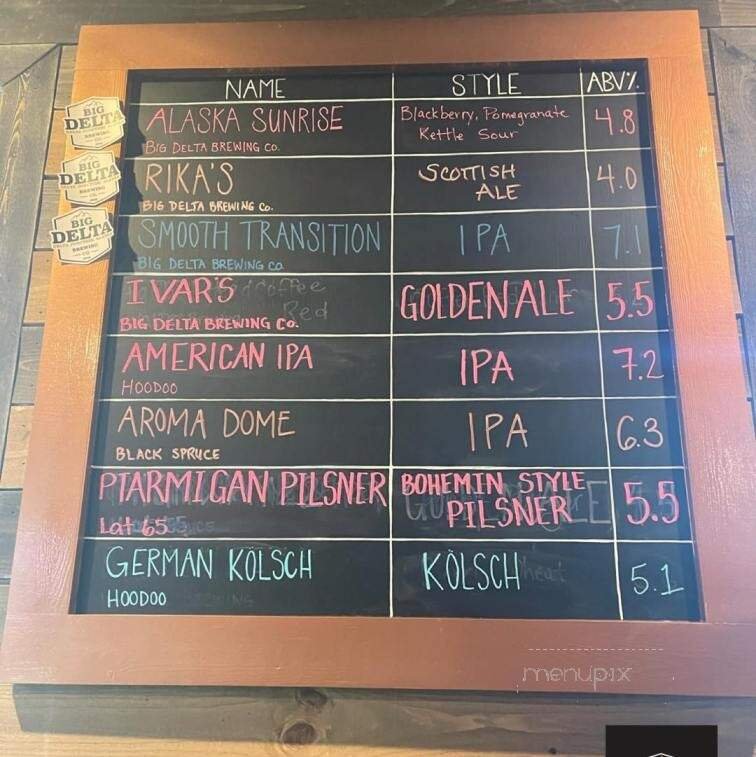 NAME STYLE ABV%
BIG DELTA BREWING
ALASKA SUNRISE Blackberry, Pomegranate 4.8
BIG DELTA BREWING CO. Kettle Sour
BIG DELTA BREWING
RIKA'S SCOTTISH 4.0
BIG DELTA BREWING Co. ALE
BIG DELTA BREWING CO
SMOOTH TRANSITION IPA 7.1
BIG DELTA BREWING CO.
IVAR'S GOLDEN ALE 5.5
Coffee
Red
BIG DELTA BREWING Co.
AMERICAN IPA IPA 7.2
HOODOO
AROMA DOME IPA 6.3
BLACK SPRUCE
PTARMIGAN PILSNER BOHEMIN STYLE 5.5
Lat 65 PILSNER
GERMAN KÖLSCH KÖLSCH 5.1
HOODOO
menupix